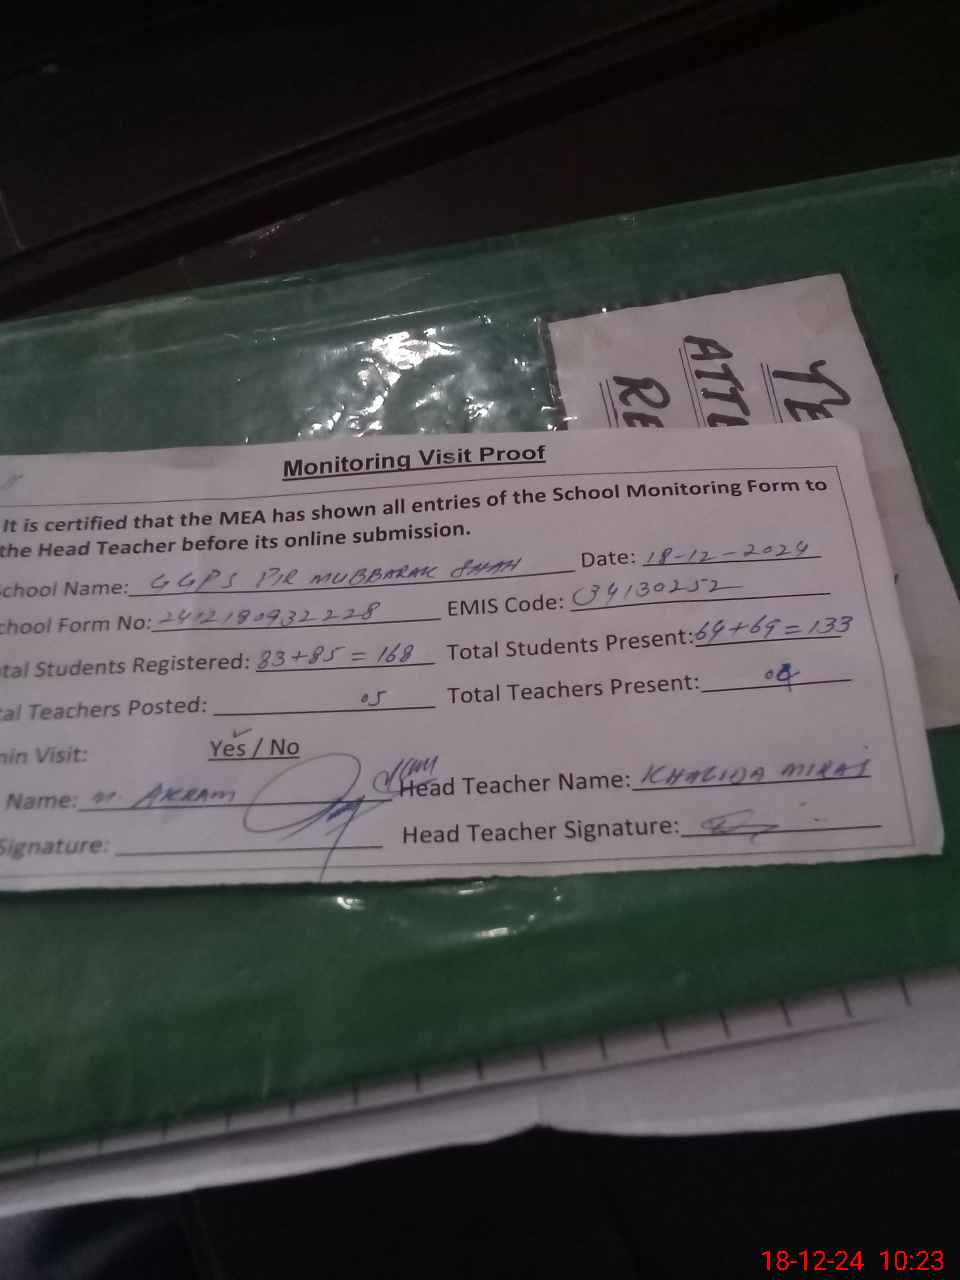 TE
ATTE
RE
Monitoring Visit Proof
It is certified that the MEA has shown all entries of the School Monitoring Form to
the Head Teacher before its online submission.
chool Name: GGPS PIR MUBBARAK SHAH Date: 18-12-2024
chool Form No: 2412180932228 EMIS Code: 34130252
tal Students Registered: 83+85=168 Total Students Present: 64+69=133
al Teachers Posted: 05 Total Teachers Present: 04
min Visit: Yes / No
Name: M. AKRAM Head Teacher Name: KHALIDA MIRAJ
Signature: Head Teacher Signature:
18-12-24 10:23